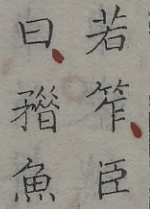 若笮臣
曰矠魚